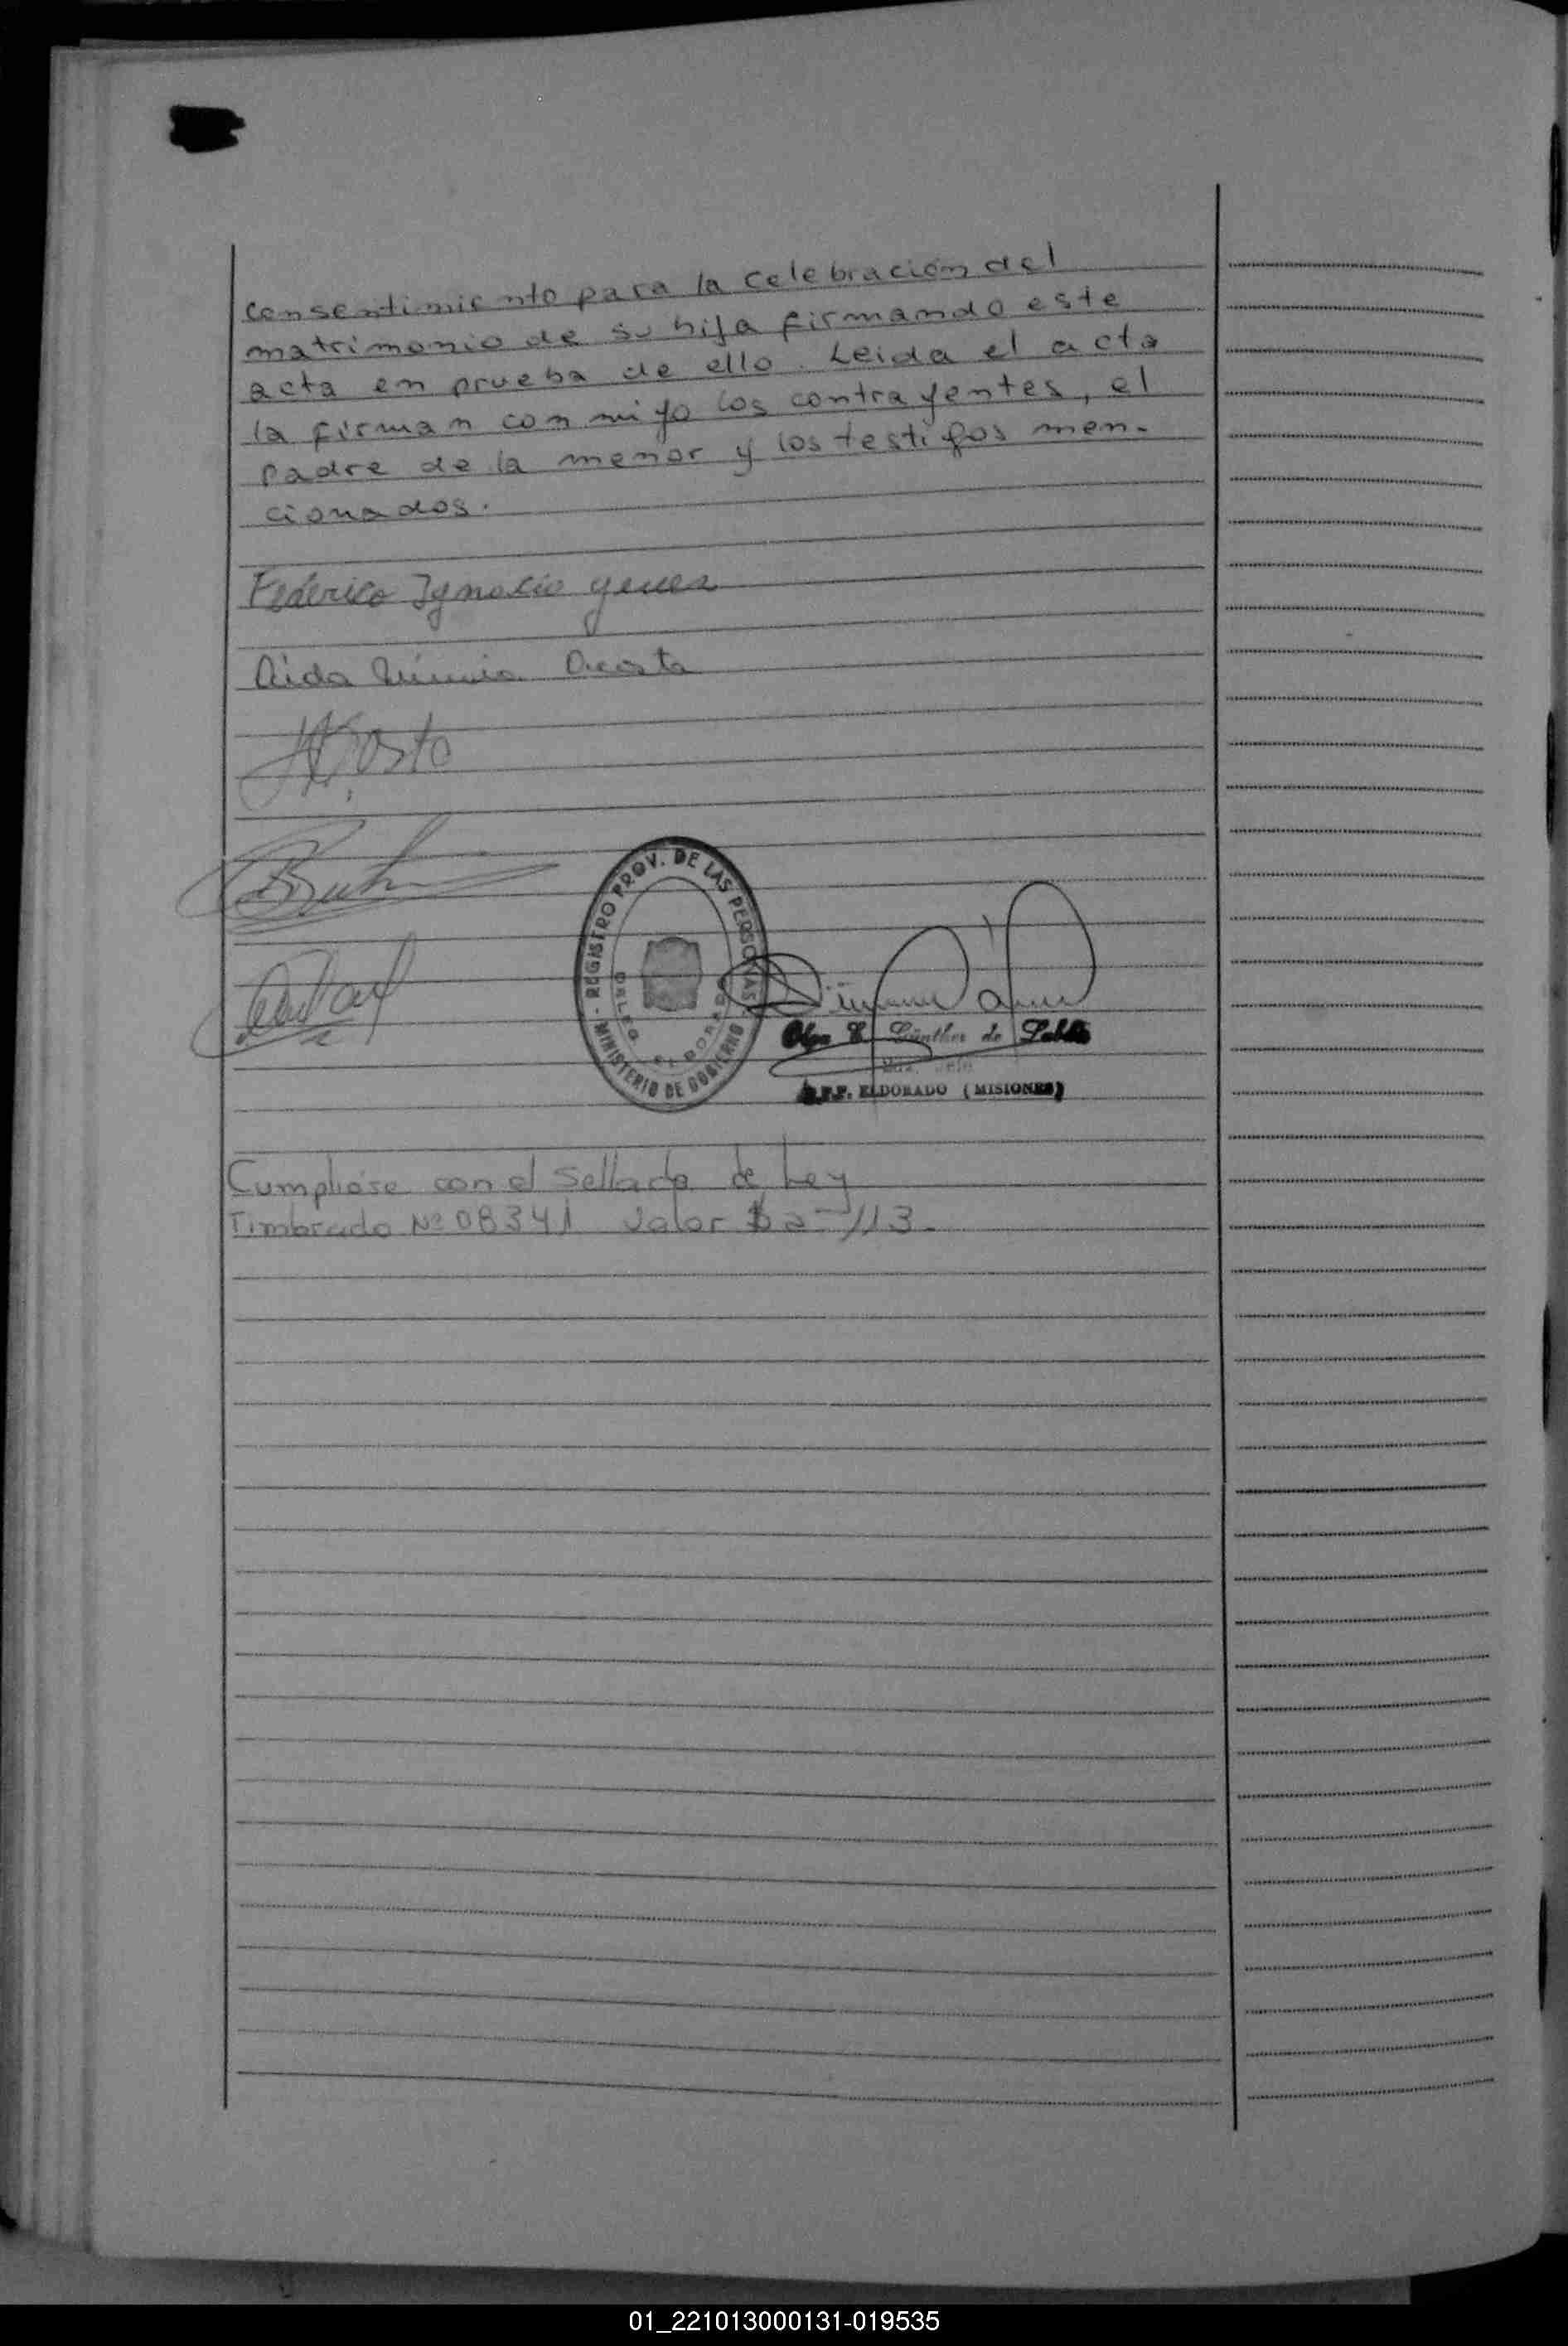 consentimiento para la celebración del
matrimonio de su hija firmando este
acta en prueba de ello. Leida el acta
la firman conmigo los contrayentes, el
padre de la menor y los testigos men-
cionados.
Federico Ignacio
Aida Acosta
REGISTRO PROV. DE LAS PERSONAS
MINISTERIO DE GOBIERNO
ELDORADO
Olga E. Günther de
ELDORADO (MISIONES)
Cumpliose con el Sellado de Ley
Timbrado Nº 08341 valor $
01_221013000131-019535